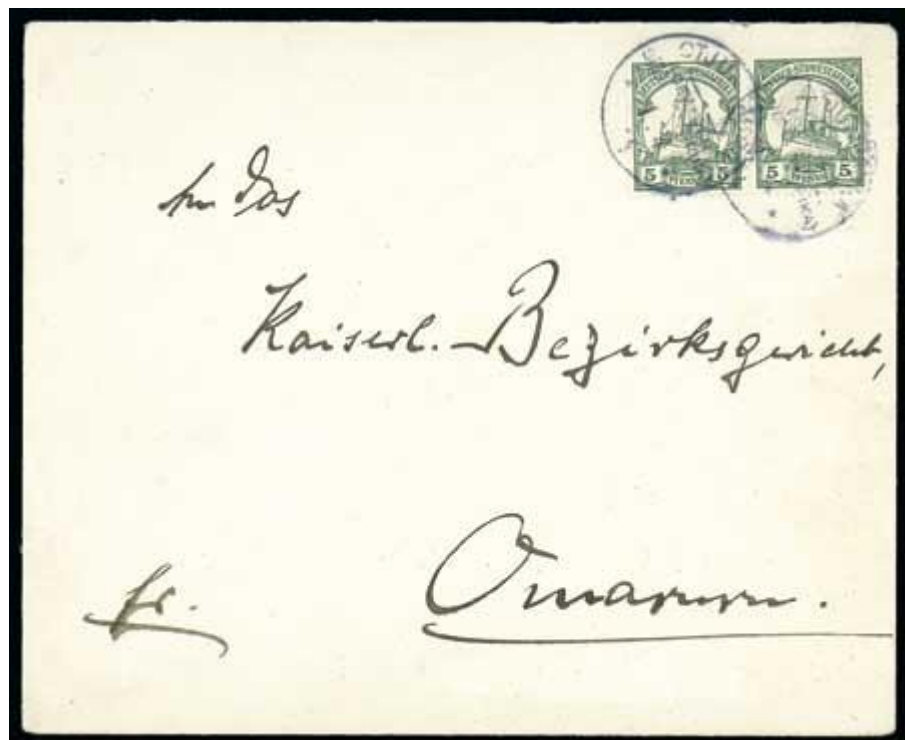 DEUTSCH-SÜDWESTAFRIKA
DEUTSCH-SÜDWESTAFRIKA
5 PFENNIG 5
5 PFENNIG 5
An das
Kaiserl. Bezirksgericht,
Omaruru.
fr.